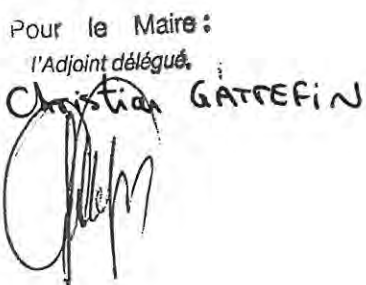 Pour le Maire :
l'Adjoint délégué.
Christian GATTEFIN